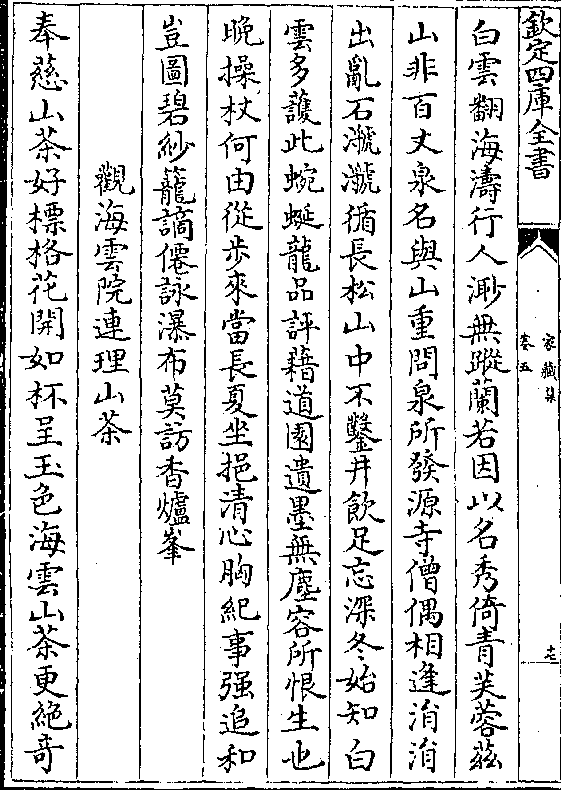 欽定四庫全書
家藏集
卷五
白雲翻海濤行人渺無蹤蘭若因以名秀倚青芙蓉茲
山非百丈泉名與山重問泉所發源寺僧偶相逢涓涓
出亂石㶁㶁循長松山中不鑿井飲足忘深冬始知白
雲多䕶此蜿蜒龍品評藉道園遺墨無塵容所恨生也
晚操杖何由從步來當長夏坐挹清心胸紀事强追和
豈圖碧紗籠謫僊詠瀑布莫訪香爐峯
觀海雲院連理山茶
奉慈山茶好標格花開如杯呈玉色海雲山茶更絶奇